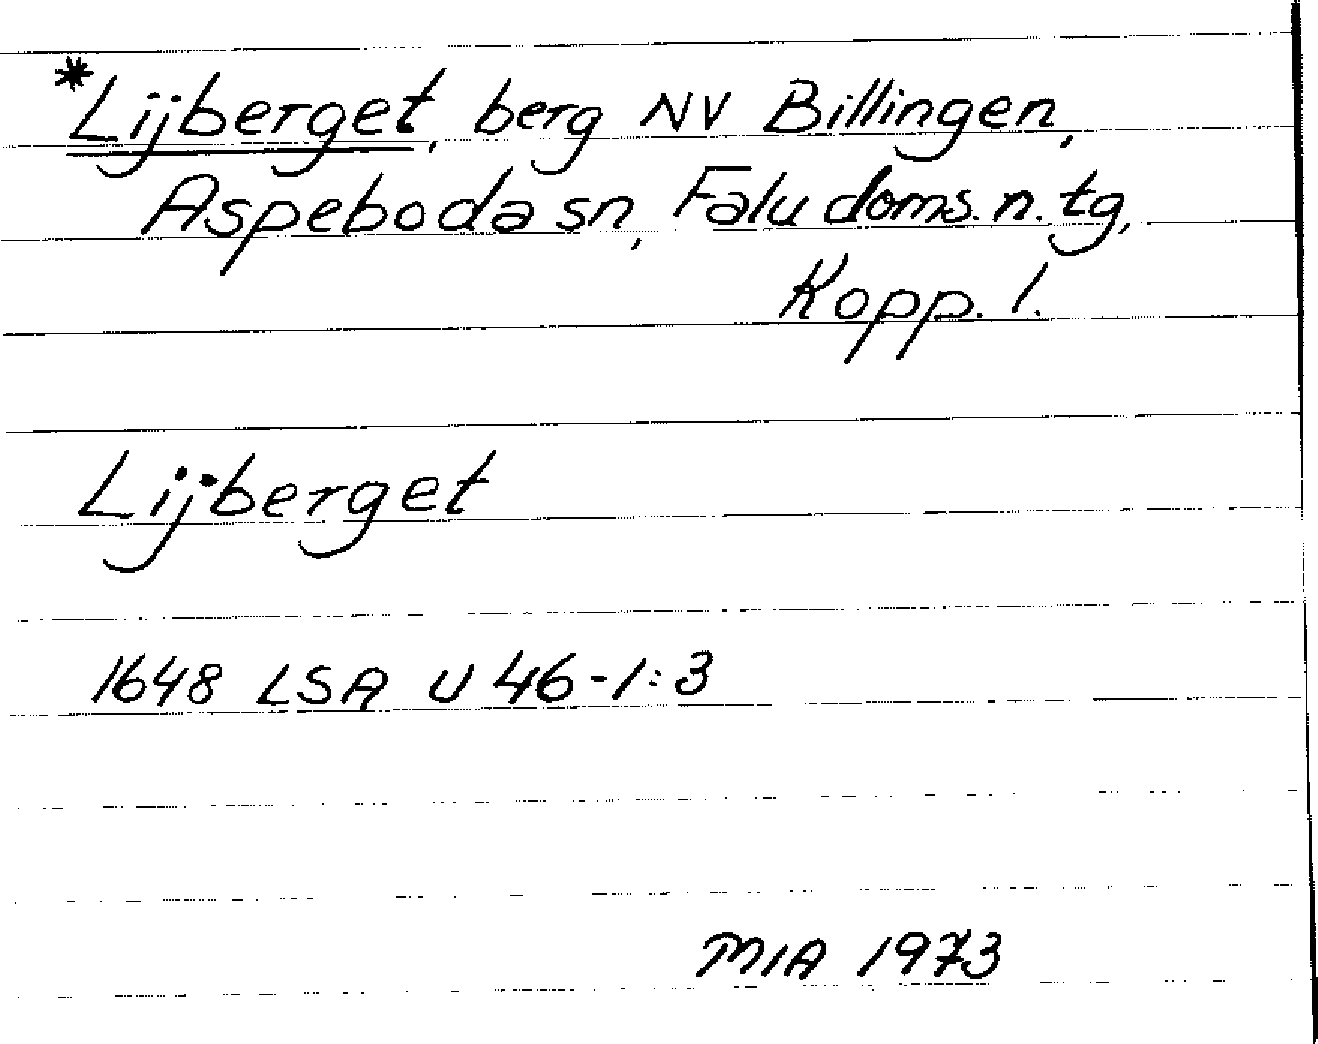 *Lijberget, berg NV Billingen,
Aspeboda sn, Falu doms. n. tg,
Kopp. l.
Lijberget
1648 LSA U 46-1:3
MIA 1973